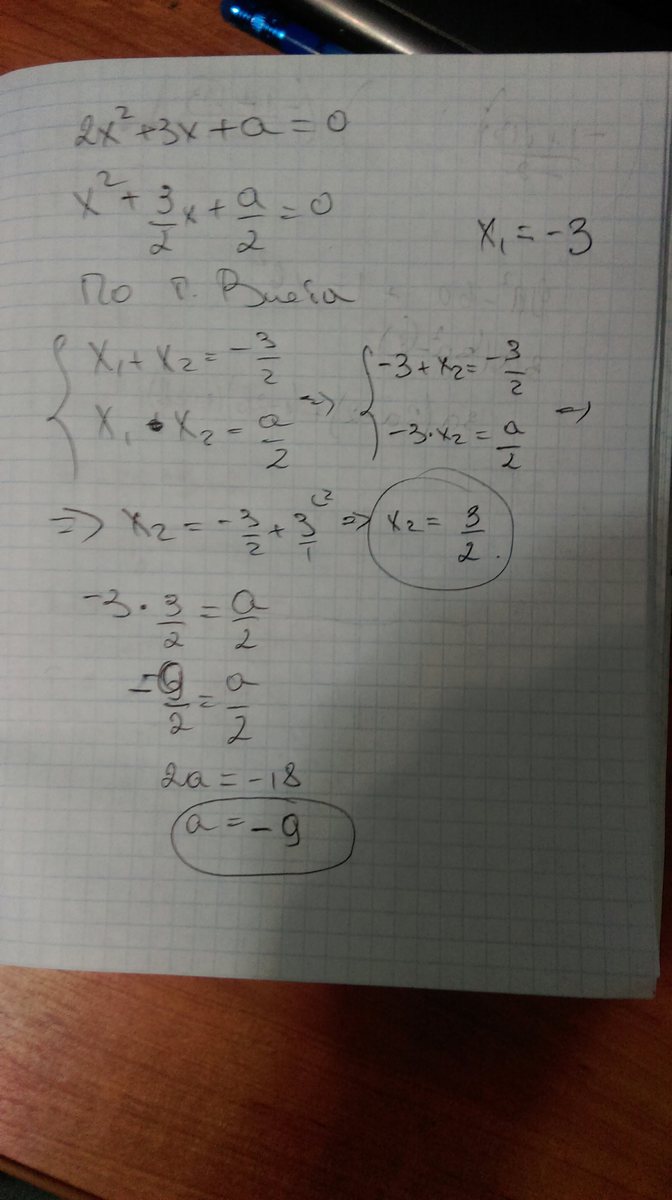 2x²+3x+a=0
x²+3/2x+a/2=0
x₁=-3
По т. Виета
{ x₁+x₂=-3/2
x₁•x₂=a/2 =>
{ -3+x₂=-3/2
-3·x₂=a/2 =>
=> x₂=-3/2+3/1 (2 => x₂=3/2.
-3·3/2=a/2
-9/2=a/2
2a=-18
a=-9